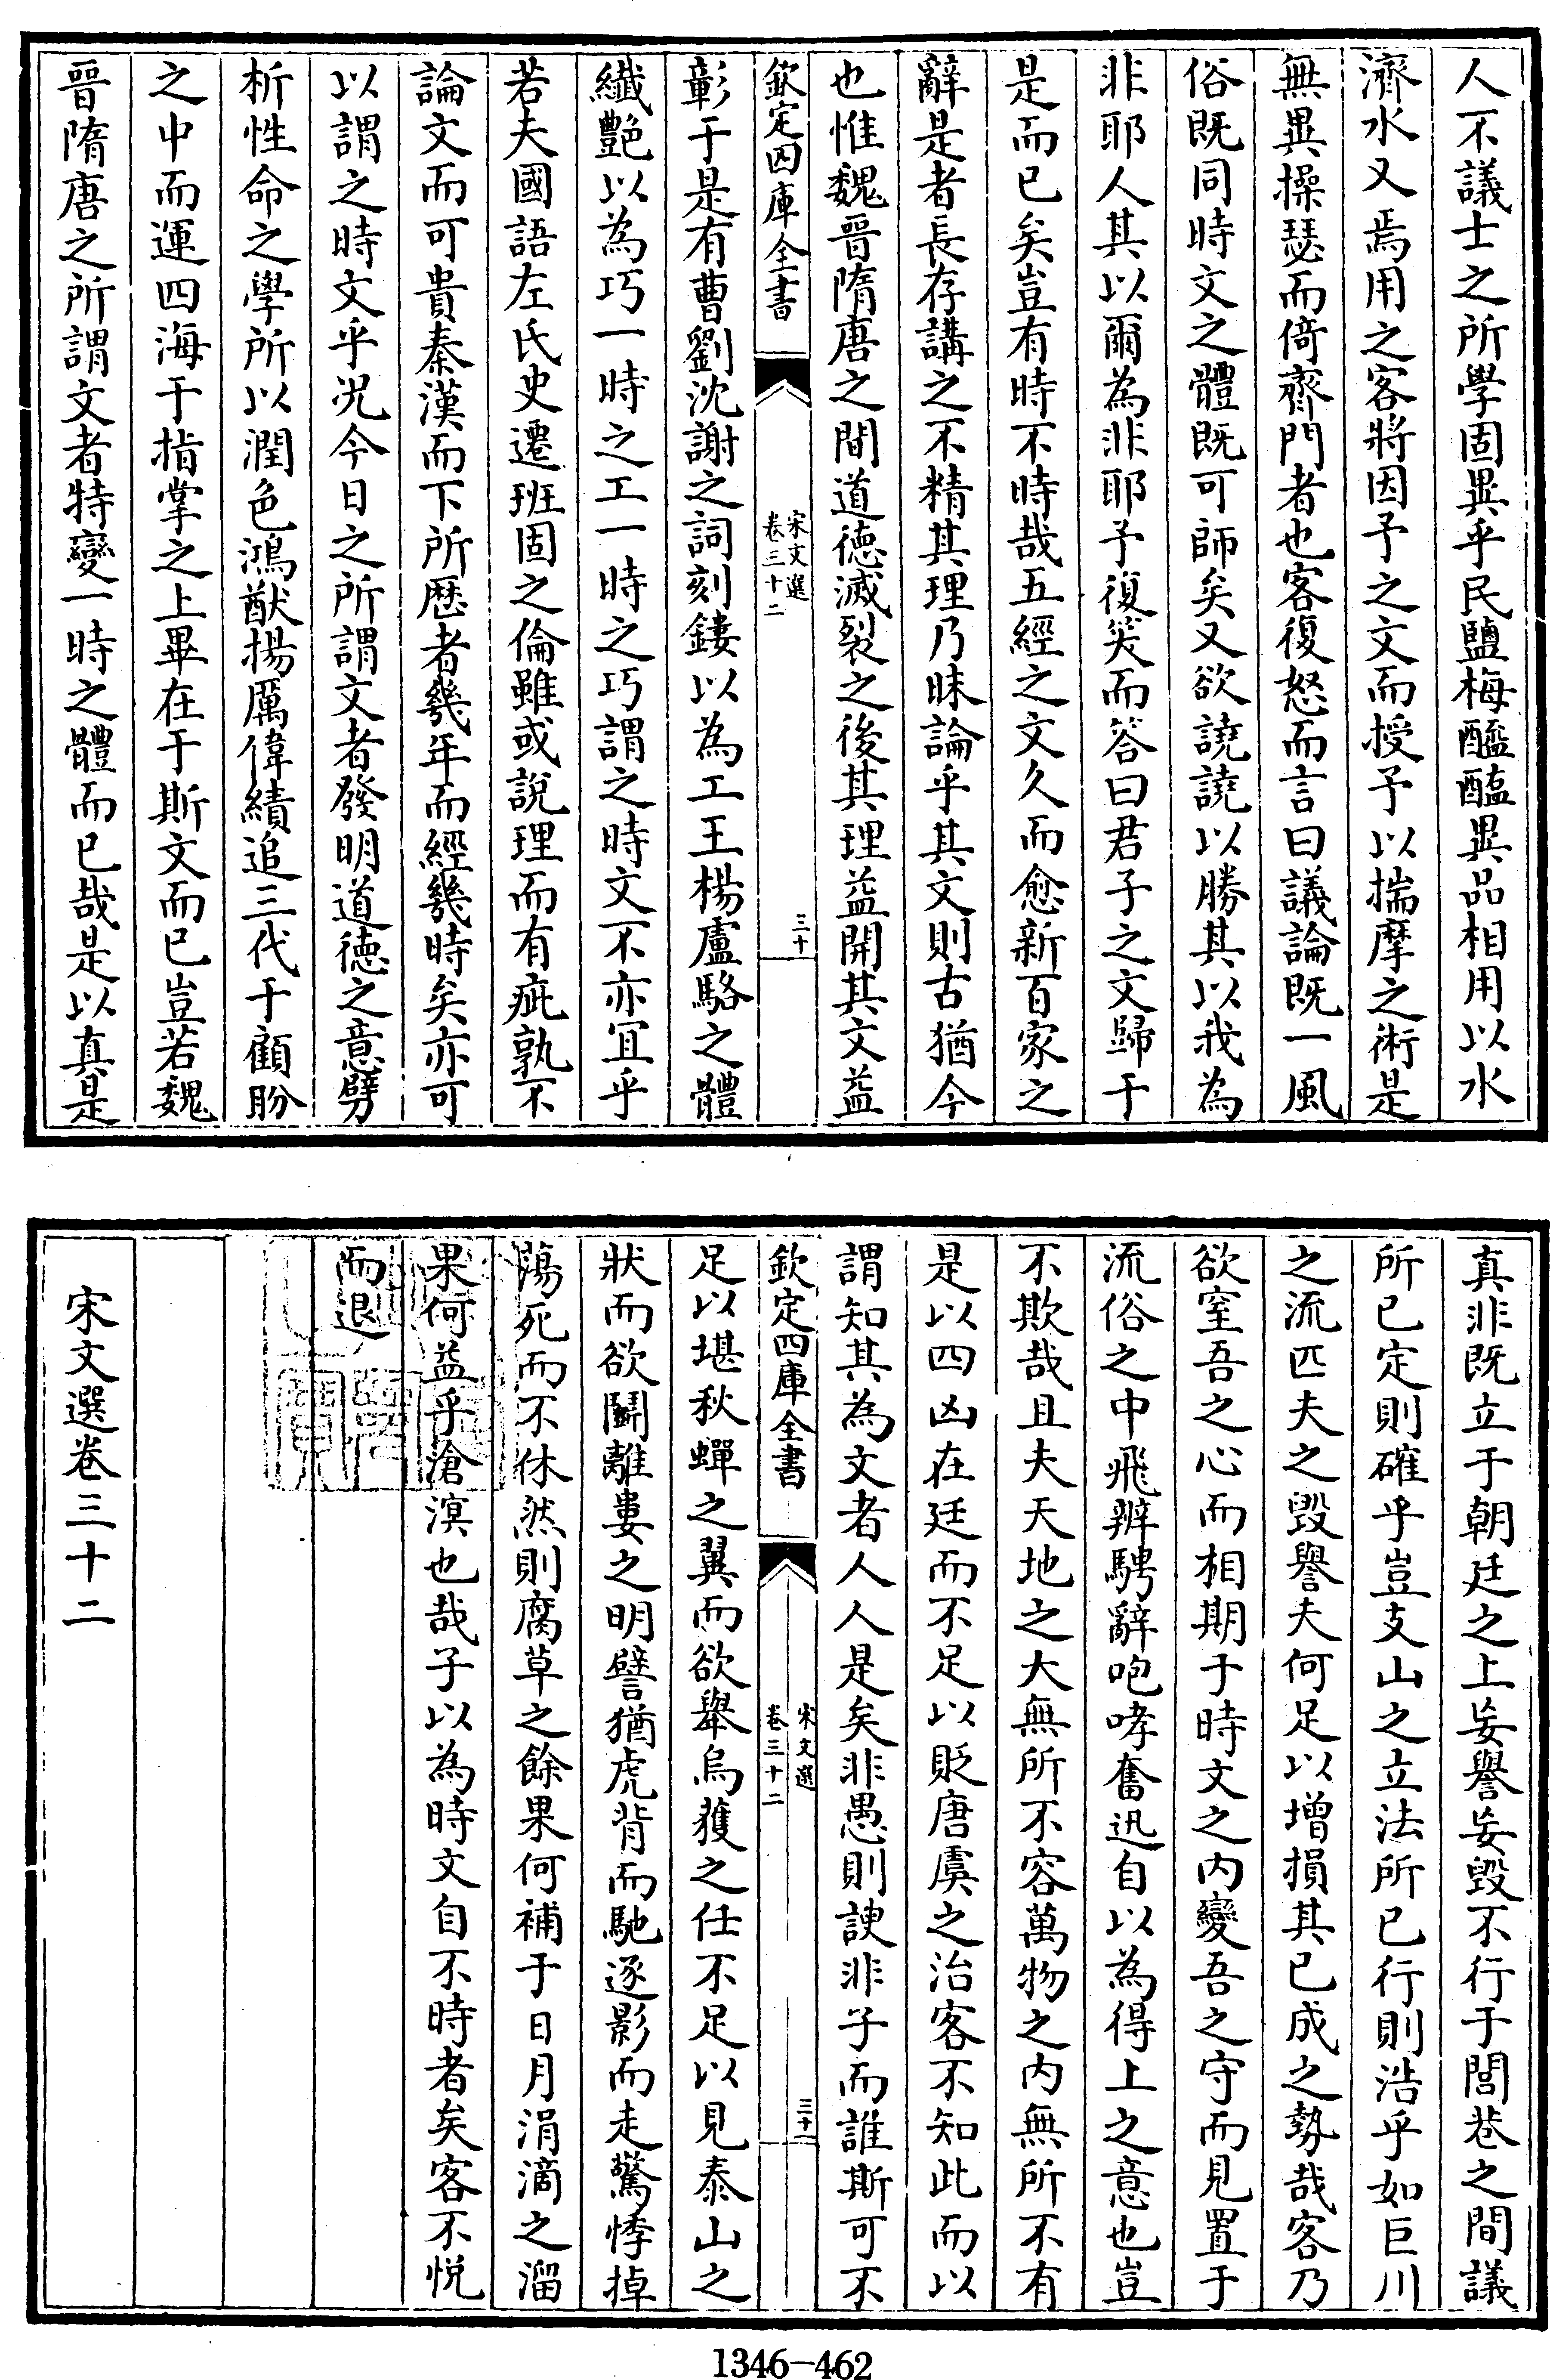 人不議士之所學固異乎民鹽梅醯醢異品相用以水
濟水又焉用之客將因予之文而授予以揣摩之術是
無異操瑟而倚齊門者也客復怒而言曰議論既一風
俗既同時文之體既可師矣又欲譊譊以勝其以我為
非耶人其以爾為非耶予復笑而答曰君子之文歸于
是而已矣豈有時不時哉五經之文久而愈新百家之
辭是者長存講之不精其理乃昧論乎其文則古猶今
也惟魏晉隋唐之間道德滅裂之後其理益開其文益
欽定四庫全書
宋文選
卷三十二
三十
彰于是有曹劉沈謝之詞刻鏤以為工王楊盧駱之體
纖艶以為巧一時之工一時之巧謂之時文不亦冝乎
若夫國語左氏史遷班固之倫雖或說理而有疵孰不
論文而可貴秦漢而下所歴者幾年而經幾時矣亦可
以謂之時文乎況今日之所謂文者發明道德之意劈
析性命之學所以潤色鴻猷揚厲偉績追三代于顧盼
之中而運四海于指掌之上畢在于斯文而已豈若魏
晉隋唐之所謂文者特變一時之體而已哉是以真是
真非既立于朝廷之上妄譽妄毀不行于閭巷之間議
所已定則確乎豈支山之立法所已行則浩乎如巨川
之流匹夫之毀譽夫何足以增損其已成之勢哉客乃
欲窒吾之心而相期于時文之内變吾之守而見置于
流俗之中飛辨騁辭咆哮奮迅自以為得上之意也豈
不欺哉且夫天地之大無所不容萬物之内無所不有
是以四凶在廷而不足以貶唐虞之治客不知此而以
謂知其為文者人人是矣非愚則諛非子而誰斯可不
欽定四庫全書
宋文選
卷三十二
三十一
足以堪秋蟬之翼而欲舉烏獲之任不足以見泰山之
狀而欲鬭離婁之明譬猶虎背而馳逐影而走驚悸掉
蕩死而不休然則腐草之餘果何補于日月涓滴之溜
果何益乎滄溟也哉子以為時文自不時者矣客不悦
而退
宋文選卷三十二
1346—462